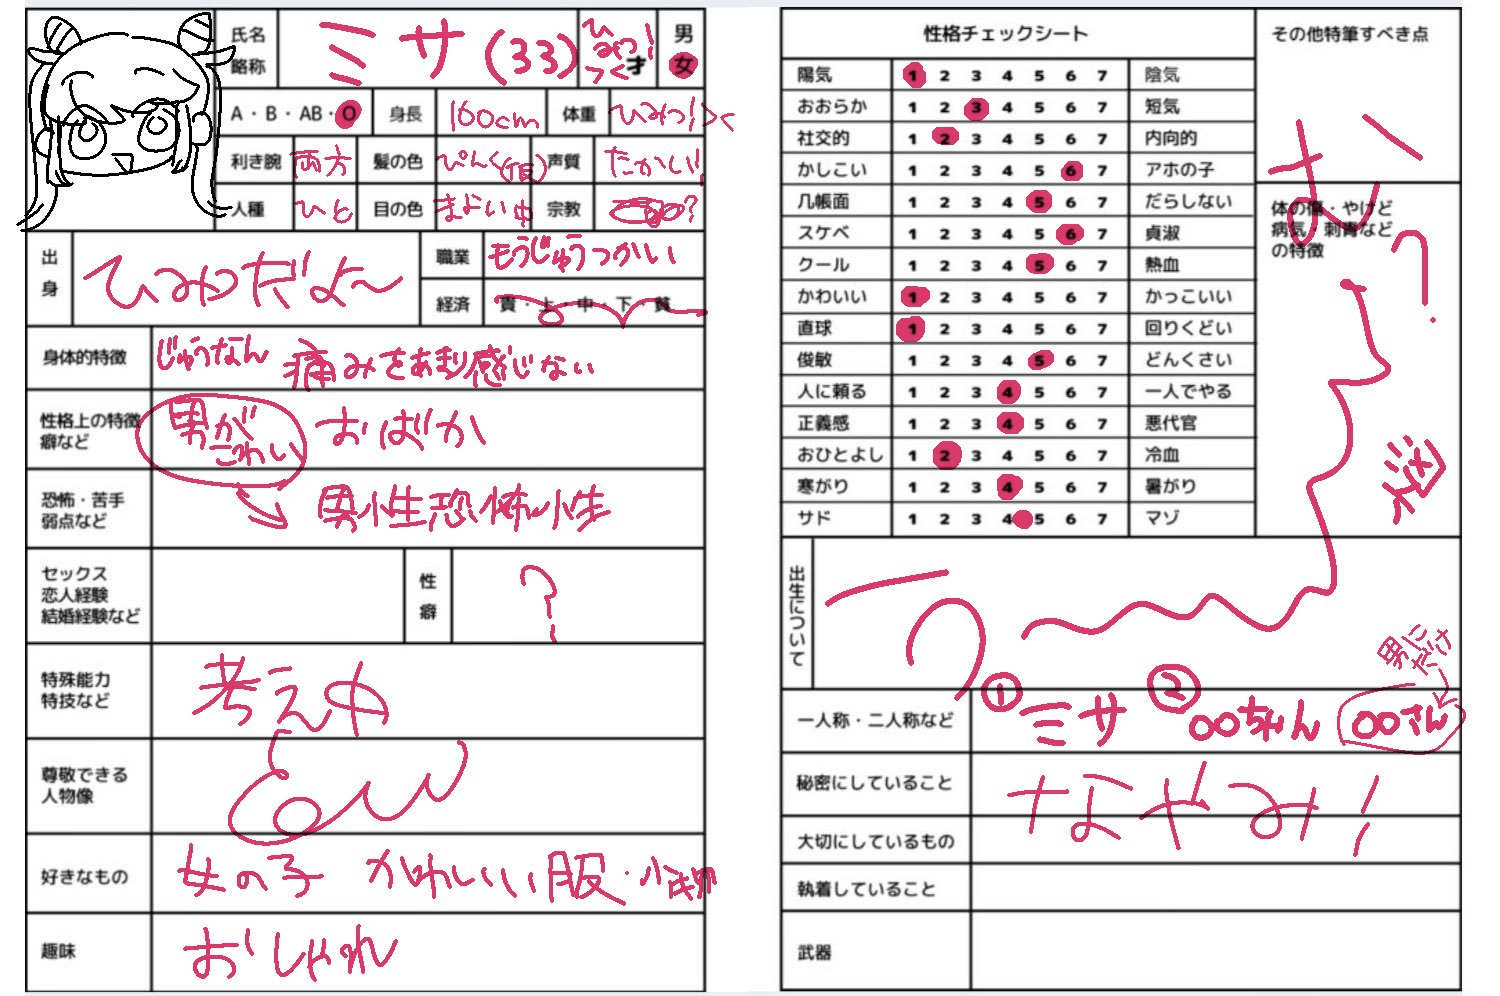 氏名
略称
ミサ(33)
ひみつ!
才
男
女
A・B・AB・O
身長
160cm
体重
ひみつ!
利き腕
両方
髪の色
ぴんく(仮)
声質
たかい!
人種
ひと
目の色
まよい中
宗教
?
出身
ひみつだよ〜
職業
もうじゅうつかい
経済
貴・上・中・下・貧
身体的特徴
じゅうなん 痛みをあまり感じない
性格上の特徴
癖など
男が
こわい
おばか
恐怖・苦手
弱点など
男性恐怖症
セックス
恋人経験
結婚経験など
性癖
?
特殊能力
特技など
考え中
尊敬できる
人物像
好きなもの
女の子 かわいい服・小物
趣味
おしゃれ
性格チェックシート
陽気 1 2 3 4 5 6 7 陰気
おおらか 1 2 3 4 5 6 7 短気
社交的 1 2 3 4 5 6 7 内向的
かしこい 1 2 3 4 5 6 7 アホの子
几帳面 1 2 3 4 5 6 7 だらしない
スケベ 1 2 3 4 5 6 7 貞淑
クール 1 2 3 4 5 6 7 熱血
かわいい 1 2 3 4 5 6 7 かっこいい
直球 1 2 3 4 5 6 7 回りくどい
俊敏 1 2 3 4 5 6 7 どんくさい
人に頼る 1 2 3 4 5 6 7 一人でやる
正義感 1 2 3 4 5 6 7 悪代官
おひとよし 1 2 3 4 5 6 7 冷血
寒がり 1 2 3 4 5 6 7 暑がり
サド 1 2 3 4 5 6 7 マゾ
その他特筆すべき点
体の傷・やけど
病気・刺青など
の特徴
出生について
一人称・二人称など
①ミサ ②○○ちゃん ○○さん
男に
だけ
秘密にしていること
なやみ!
大切にしているもの
執着していること
武器